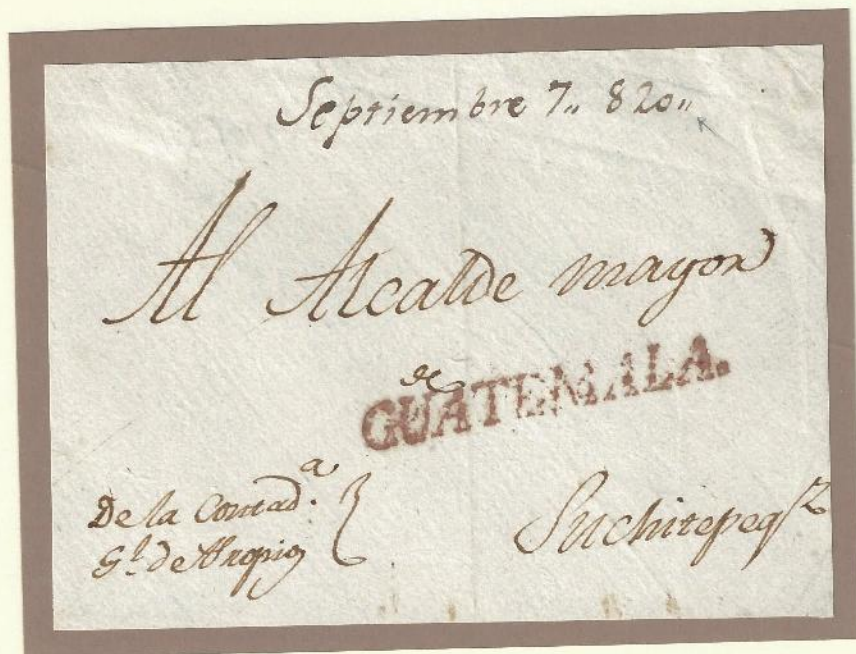 Septiembre 7,, 820,,
Al Alcalde mayor
de
GUATEMALA.
De la Contad.ª
Gl. de Propios
Suchitepeqz